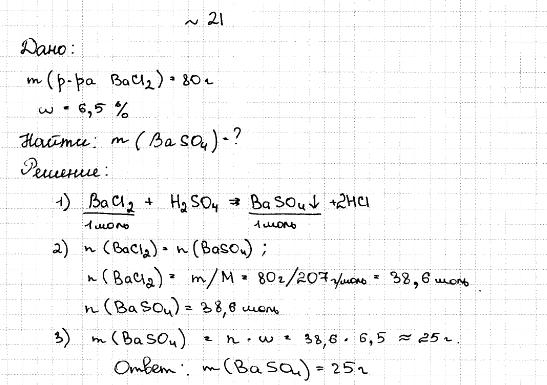 ~ 21
Дано:
m (р-ра BaCl₂) = 80 г
w = 6,5 %
Найти: m (BaSO₄) - ?
Решение:
1) BaCl₂ + H₂SO₄ ⇒ BaSO₄↓ + 2HCl
1 моль 1 моль
2) n (BaCl₂) = n (BaSO₄) ;
n (BaCl₂) = m/M = 80г/207 г/моль = 38,6 моль.
n (BaSO₄) = 38,6 моль
3) m (BaSO₄) = n · w = 38,6 · 6,5 ≈ 25 г.
Ответ: m (BaSO₄) = 25 г